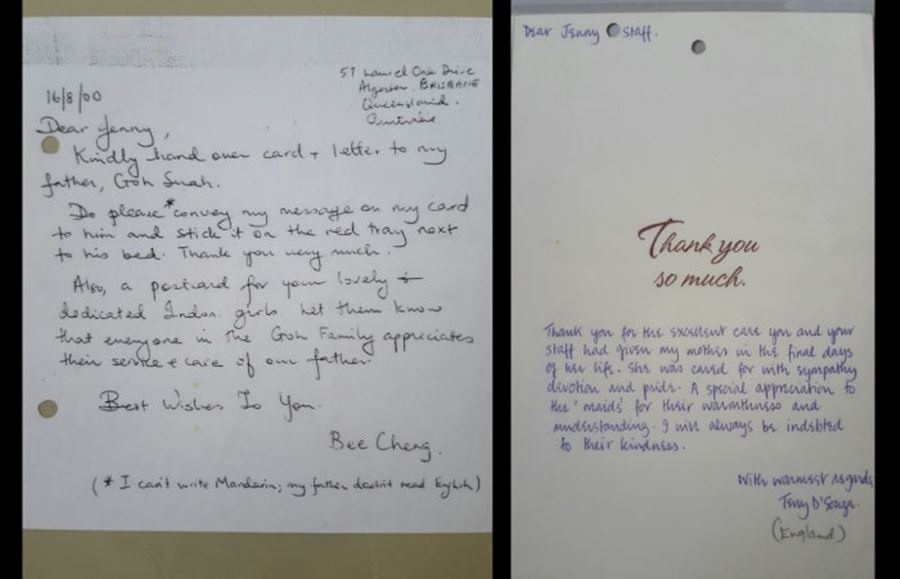 57 Laurel Oak Drive
Algester, BRISBANE
Queensland.
Australia
16/8/00
Dear Jenny,
Kindly hand over card + letter to my
father, Goh Suah.
Do please *convey my message on my card
to him and stick it on the red tray next
to his bed. Thank you very much.
Also, a postcard for your lovely +
dedicated Indon. girls. Let them know
that everyone in The Goh Family appreciates
their service + care of our father.
Best Wishes To You.
Bee Cheng.
(* I can't write Mandarin; my father doesn't read English)
Dear Jenny & Staff.
Thank you
so much.
Thank you for the excellent care you and your
staff had given my mother in the final days
of her life. She was cared for with sympathy
devotion and pride. A special appreciation to
the 'maids' for their warmthness and
understanding. I will always be indebted
to their kindness.
With warmest regards
Terry D'Souza.
(England)